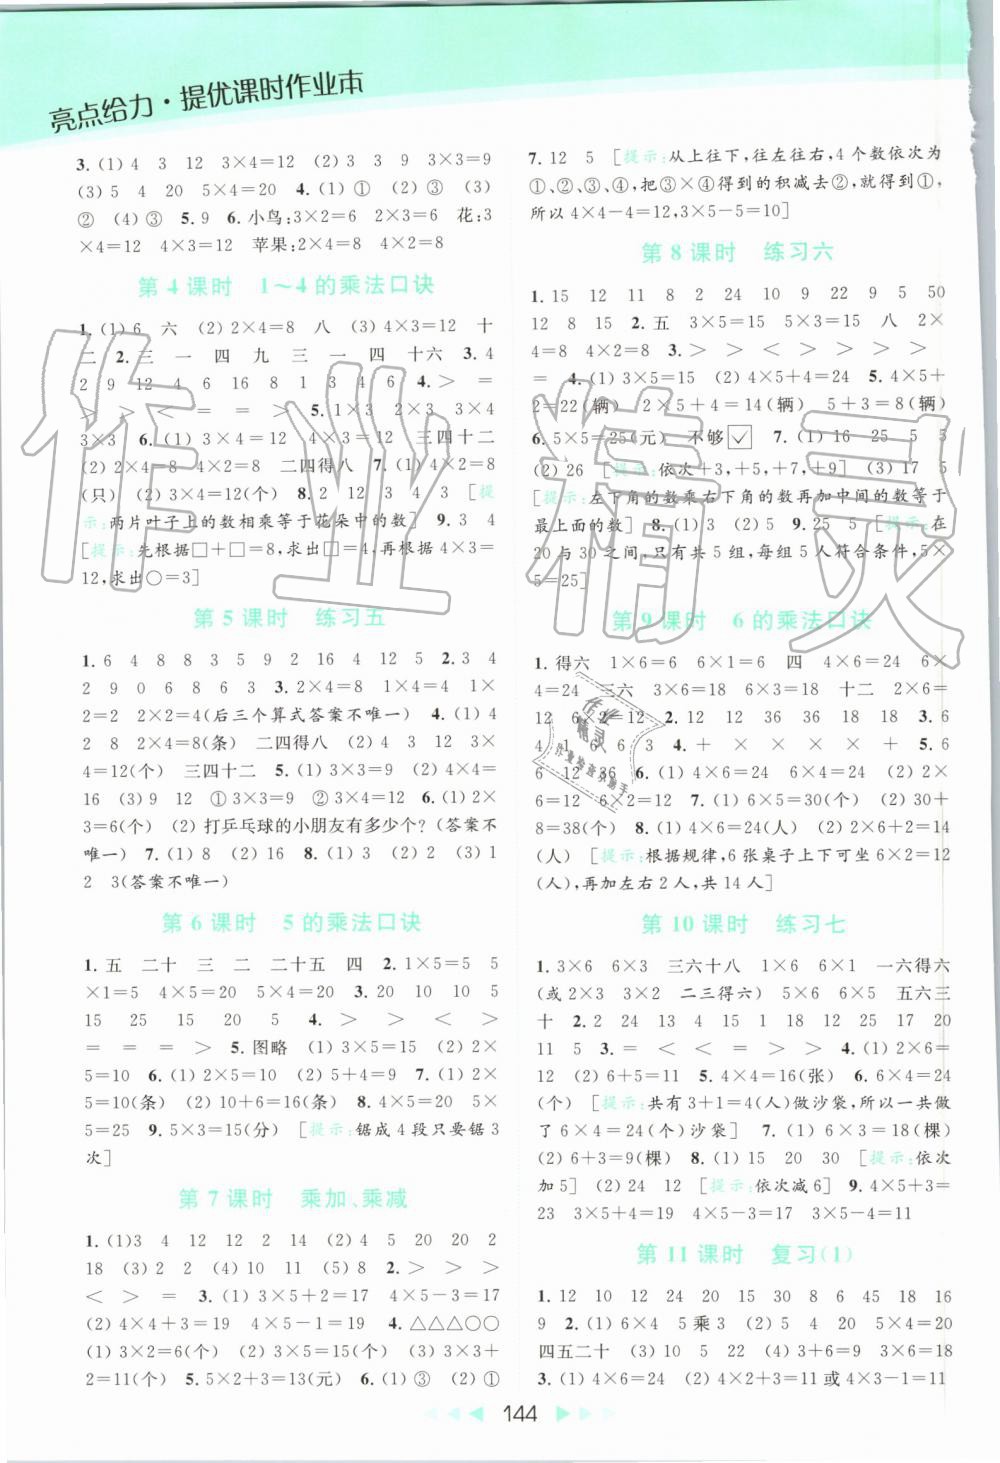 亮点给力·提优课时作业本
3. (1) 4 3 12 3×4=12 (2) 3 3 9 3×3=9
(3) 5 4 20 5×4=20 4. (1) ① (2) ③ (3)
② (4) ③ 5. 9 6. 小鸟:3×2=6 2×3=6 花:3
×4=12 4×3=12 苹果:2×4=8 4×2=8
第4课时 1～4的乘法口诀
1. (1) 6 六 (2) 2×4=8 八 (3) 4×3=12 十
二 2. 三 一 四 九 三 一 四 十六 3. 4
2 9 12 4 6 16 8 1 3 4 6 4. > =
= > > < = 5. 1×3 2×3 3×4
3×3 6. (1) 3×4=12 4×3=12 三四十二
(2) 2×4=8 4×2=8 二四得八 7. (1) 4×2=8
(只) (2) 3×4=12(个) 8. 2 12 3 4 3 [提
示:两片叶子上的数相乘等于花朵中的数] 9. 3 4
[提示:先根据□+□=8,求出□=4,再根据 4×3=
12,求出○=3]
第5课时 练习五
1. 6 4 8 8 3 9 2 16 4 12 5 2. 3 4
2 9 0 6 8 6 3 3. 2×4=8 1×4=4 1×
2=2 2×2=4(后三个算式答案不唯一) 4. (1) 4
2 8 2×4=8(条) 二四得八 (2) 4 3 12 3×
4=12(个) 三四十二 5. (1) 3×3=9 (2) 4×4=
16 (3) 9 12 ①3×3=9 ②3×4=12 6. (1) 2×
3=6(个) (2) 打乒乓球的小朋友有多少个?(答案不
唯一) 7. (1) 8 (2) 16 8. (1) 3 (2) 2 (3) 1
2 3(答案不唯一)
第6课时 5的乘法口诀
1. 五 二十 三 二 二十五 四 2. 1×5=5 5
×1=5 4×5=20 5×4=20 3. 20 10 10 5
15 25 15 20 5 4. > > < >
= = = > 5. 图略 (1) 3×5=15 (2) 2×
5=10 6. (1) 2×5=10 (2) 5+4=9 7. (1) 2×
5=10(条) (2) 10+6=16(条) 8. 4×5=20 5×
5=25 9. 5×3=15(分) [提示:锯成4段只要锯3
次]
第7课时 乘加、乘减
1. (1)3 4 12 12 2 14 (2) 4 5 20 20 2
18 (3) 2 2 (4) 10 (5) 8 2. > > >
< > = 3. (1) 3×5+2=17 4×5-3=17
(2) 4×4+3=19 4×5-1=19 4. △△△○○
(1) 3×2=6(个) (2) 3×3+2=11 (3) 3×3+
2=11(个) 5. 5×2+3=13(元) 6. (1) ③ (2) ①
7. 12 5 [提示:从上往下,往左往右,4个数依次为
①、②、③、④,把③×④得到的积减去②,就得到①,
所以 4×4-4=12,3×5-5=10]
第8课时 练习六
1. 15 12 11 8 2 24 10 9 22 9 5 50
12 8 15 2. 五 3×5=15 5×3=15 八 2×
4=8 4×2=8 3. > > < > > > >
= 4. (1) 3×5=15 (2) 4×5+4=24 5. 4×5+
2=22(辆) 2×5+4=14(辆) 5+3=8(辆)
6. 5×5=25(元) 不够☑ 7. (1) 16 25 5 5
(2) 26 [提示:依次+3,+5,+7,+9] (3) 17 5
[提示:左下角的数乘右下角的数再加中间的数等于
最上面的数] 8. (1) 3 (2) 5 9. 25 5 [提示:在
20与30之间,只有共5组,每组5人符合条件,5×
5=25]
第9课时 6的乘法口诀
1. 得六 1×6=6 6×1=6 四 4×6=24 6×
4=24 三六 3×6=18 6×3=18 十二 2×6=
12 6×2=12 2. 12 12 36 36 18 18 3. 6
4 1 6 6 3 4. + × × × × + 5. 6
6 12 36 6. (1) 4×6=24 6×4=24 (2) 2×6=
12 6×2=12 7. (1) 6×5=30(个) (2) 30+
8=38(个) 8. (1) 4×6=24(人) (2) 2×6+2=14
(人) [提示:根据规律,6张桌子上下可坐 6×2=12
(人),再加左右2人,共14人]
第10课时 练习七
1. 3×6 6×3 三六十八 1×6 6×1 一六得六
(或 2×3 3×2 二三得六) 5×6 6×5 五六三
十 2. 2 24 13 4 15 1 18 12 5 17 20
11 5 3. = < < = > > 4. (1) 2×6=
12 (2) 6+5=11 5. 4×4=16(张) 6. 6×4=24
(个) [提示:共有 3+1=4(人)做沙袋,所以一共做
了 6×4=24(个)沙袋] 7. (1) 3×6=18(棵)
(2) 6+3=9(棵) 8. (1) 15 20 30 [提示:依次
加5] (2) 24 12 [提示:依次减6] 9. 4×5+3=
23 3×5+4=19 4×5-3=17 3×5-4=11
第11课时 复习(1)
1. 12 10 12 24 20 15 30 5 45 18 16
9 2. (1) 6×4 5乘3 (2) 4 5 20 5×4=20
四五二十 (3) 10 5 22 (4) 6 3 6×3=18
3. (1) 4×6=24 (2) 4×2+3=11 或 4×3-1=11
144
作业精灵
作业
精灵
作业检查小助手